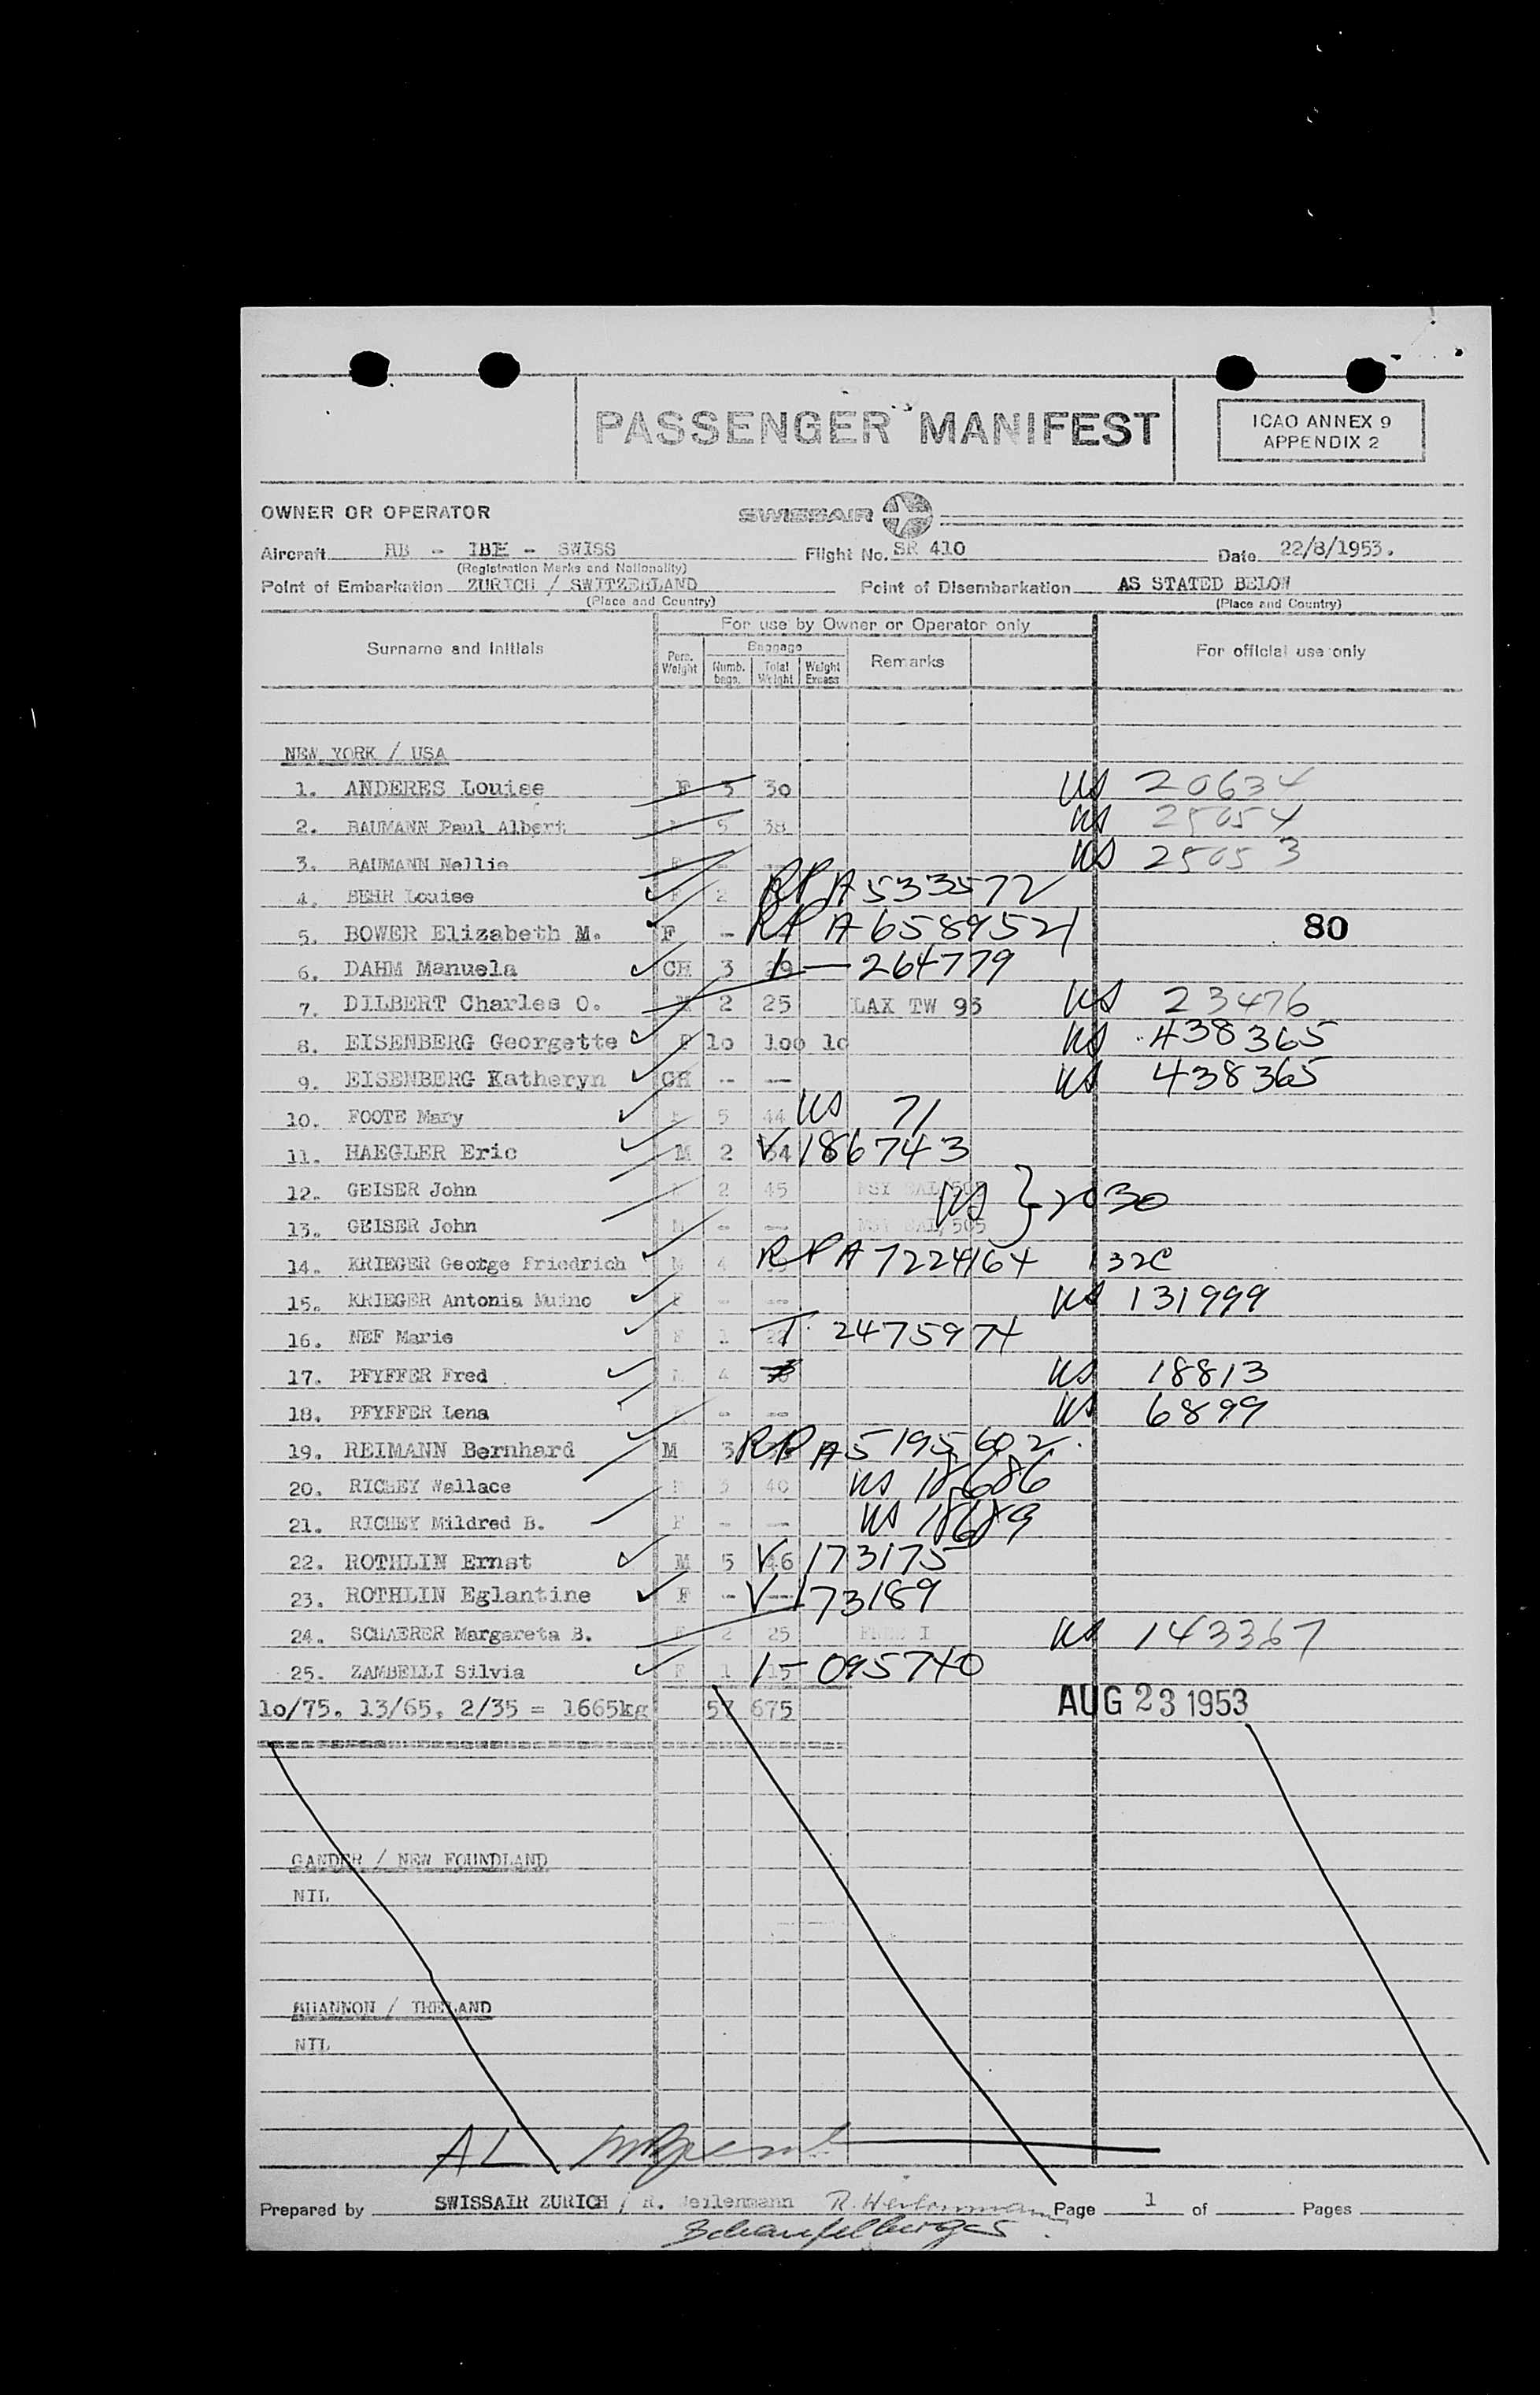 PASSENGER MANIFEST
ICAO ANNEX 9
APPENDIX 2
OWNER OR OPERATOR SWISSAIR
Aircraft HB - IBE - SWISS Flight No. SR 410 Date 22/8/1953.
(Registration Marks and Nationality)
Point of Embarkation ZURICH / SWITZERLAND Point of Disembarkation AS STATED BELOW
(Place and Country) (Place and Country)
For use by Owner or Operator only
Surname and Initials Pers. Weight Baggage Numb. bags. Total Weight Weight Excess Remarks For official use only
NEW YORK / USA
1. ANDERES Louise F 3 30 US 20634
2. BAUMANN Paul Albert M 5 38 US 25054
3. BAUMANN Nellie F - -- US 25053
4. BEHR Louise F 2 RP A533572
5. BOWER Elizabeth M. F - RP A6589521 80
6. DAHM Manuela CH 3 29 I-264779
7. DILBERT Charles O. M 2 25 LAX TW 93 US 23476
8. EISENBERG Georgette F 10 100 10 US 438365
9. EISENBERG Katheryn CH -- -- US 438365
10. FOOTE Mary F 5 44 US 71
11. HAEGLER Eric M 2 34 V 186743
12. GEISER John M 2 45 US } 2030
13. GEISER John M - -- 505
14. KRIEGER George Friedrich M 4 RP A7224164 132C
15. KRIEGER Antonia Muino F - -- US 131999
16. NEF Marie F 1 22 T. 2475974
17. PFYFFER Fred M 4 US 18813
18. PFYFFER Lena F - -- US 6899
19. REIMANN Bernhard M 3 RP A5195602.
20. RICHEY Wallace M 3 40 US 18686
21. RICHEY Mildred B. F - -- US 18689
22. ROTHLIN Ernst M 5 46 V 173175
23. ROTHLIN Eglantine F - -- V-173189
24. SCHAERER Margareta B. F 2 25 US 143367
25. ZAMBELLI Silvia F 1 15 I-095740
10/75. 13/65. 2/35 = 1665kg 57 675 AUG 23 1953
GANDER / NEW FOUNDLAND
NIL
SHANNON / IRELAND
NIL
AL
Prepared by SWISSAIR ZURICH / R. Weilenmann R. Weilenmann Page 1 of Pages
Schaufelberger